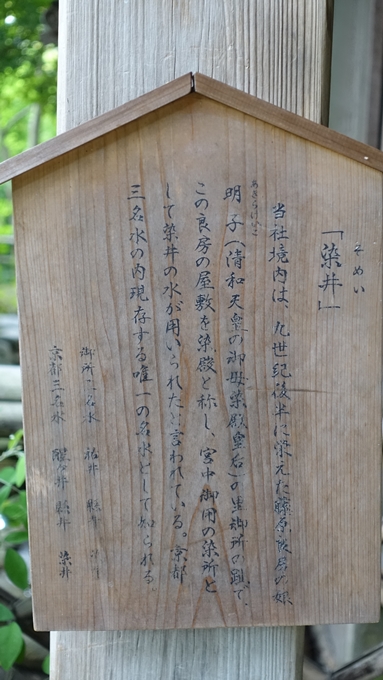 そめい
「染井」
当社境内は、九世紀後半に栄えた藤原良房の娘
あきらけいこ
明子（清和天皇の御母染殿皇后）の里御所の跡で、
この良房の屋敷を染殿と称し、宮中御用の染所と
して染井の水が用いられたと言われている。京都
三名水の内現存する唯一の名水として知られる
御所三名水 祐井 縣井
京都三名水 醒ヶ井 縣井 染井